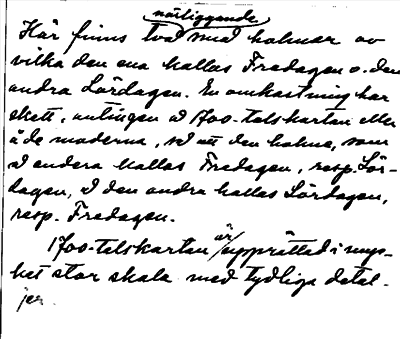 närliggande
Här finns två små holmar av
vilka den ena kallas Fredagen o. den
andra Lördagen. En omkastning har
skett, antingen å 1700-talskartan eller
å de moderna, så att den holme, som
å endera kallas Fredagen, resp. Lör-
dagen, å den andra kallas Lördagen,
resp. Fredagen.
1700-talskartan är upprättad i myc-
ket stor skala med tydliga detal-
jer.